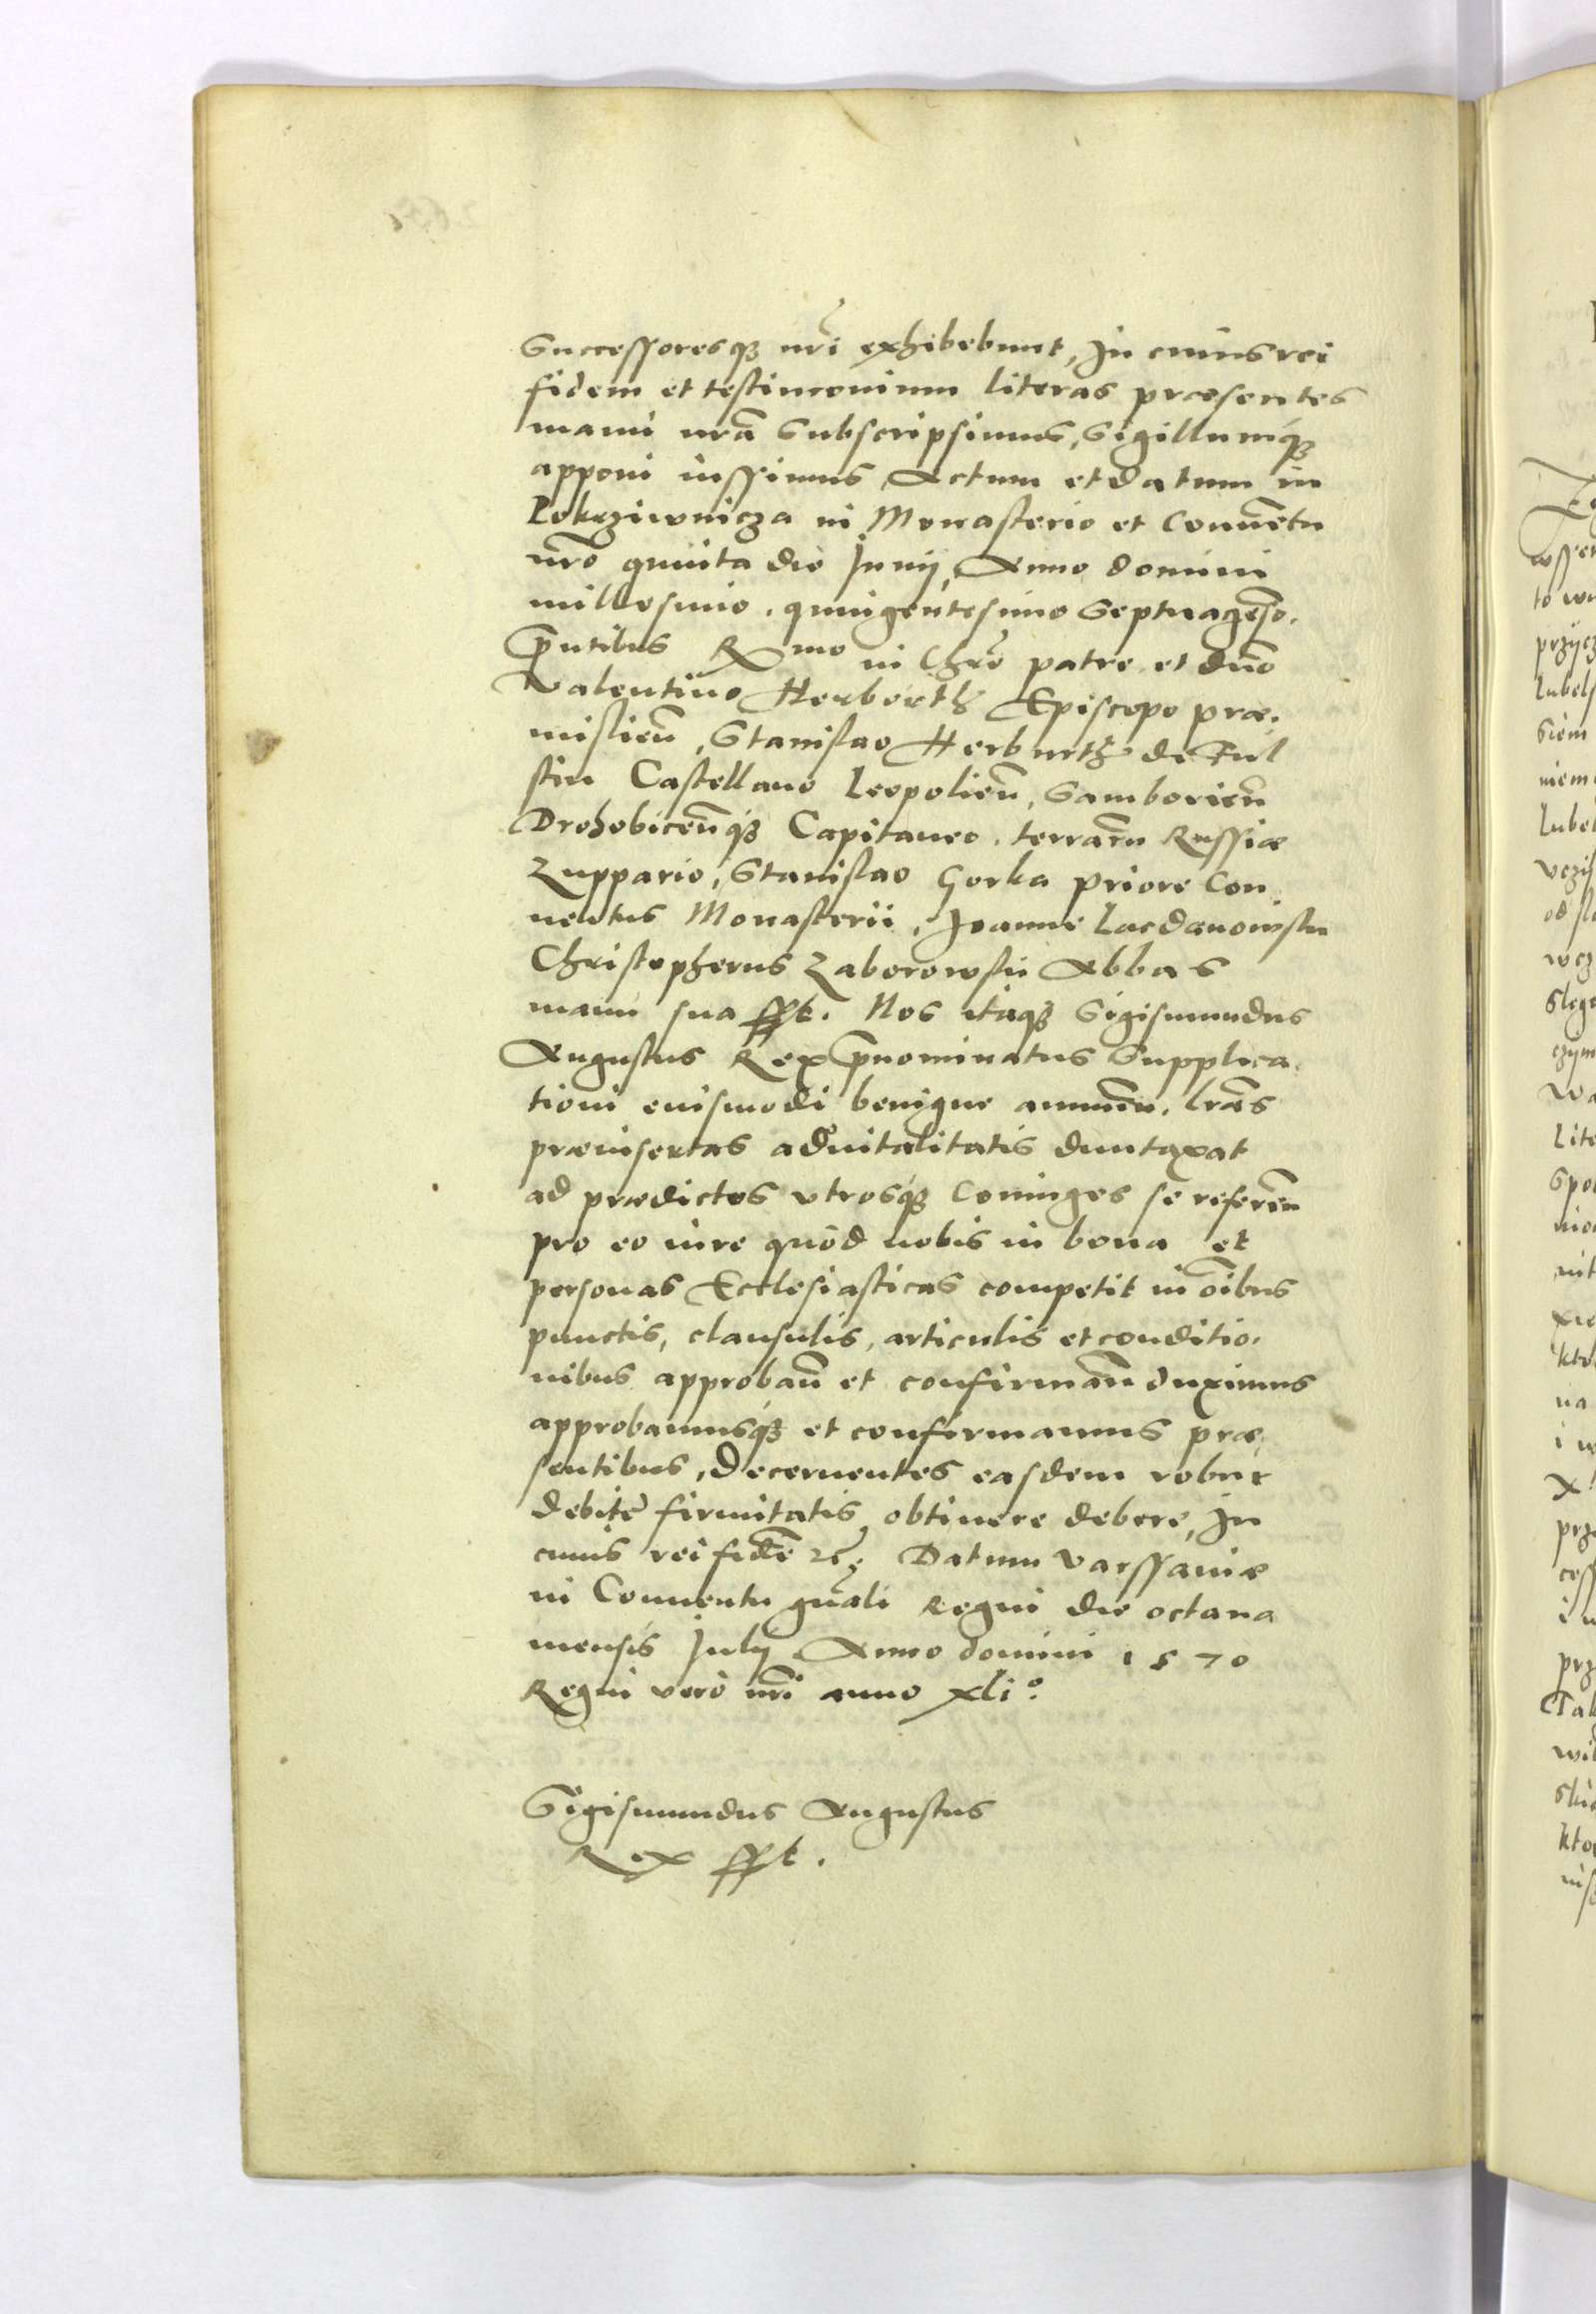 Successoresq3 nri exhibebunt, In cuius rei
fidem et testimonium literas præsentes
manu nrã subscripsimus, Sigillumq3
apponi iussimus Actum et datum in
Pokrziwnicza in Monasterio et Conuẽtu
nro quinta die Junij, Anno domini
millesimo. quingentesimo Septuagesõ.
pñtibus Rmo in Chrõ patre et dnõ
Valentino Herborth Episcopo præ.
mislieñ, Stanislao Herburth de Ful
stin Castellano Leopolieñ, Samborieñ
Drohobiceñq3 Capitaneo. terrarũ Russiæ
Zuppario, Stanislao Gorka Priore Con
uentus Monasterii, Joanne
Christopherus Zaborowski Abbas
manu sua sst. Nos itaq3 Sigismundus
Augustus Rex pñominatus Supplica.
tioni euismodi benigne annueñ. lrãs
præinsertas aduitalitatis duntaxat
ad prædictos vtrosq3 Coniuges se refereñ
pro eo iure quod nobis in bona et
personas Ecclesiasticas competit in oĩbus
punctis, clausulis, articulis et conditio.
nibus approbañ et confirmañ duximus
approbamusq3 et confirmamus præ,
sentibus, Decernentes easdem robur
debitę firmitatis obtinere debere, In
cuius rei fidẽ etc. Datum Varssauiæ
in Conuentu gñali Regni die octaua
mensis Julij Anno domini 1570
Regni vero nri anno xli°.
Sigismundus Augustus
Rex sst.